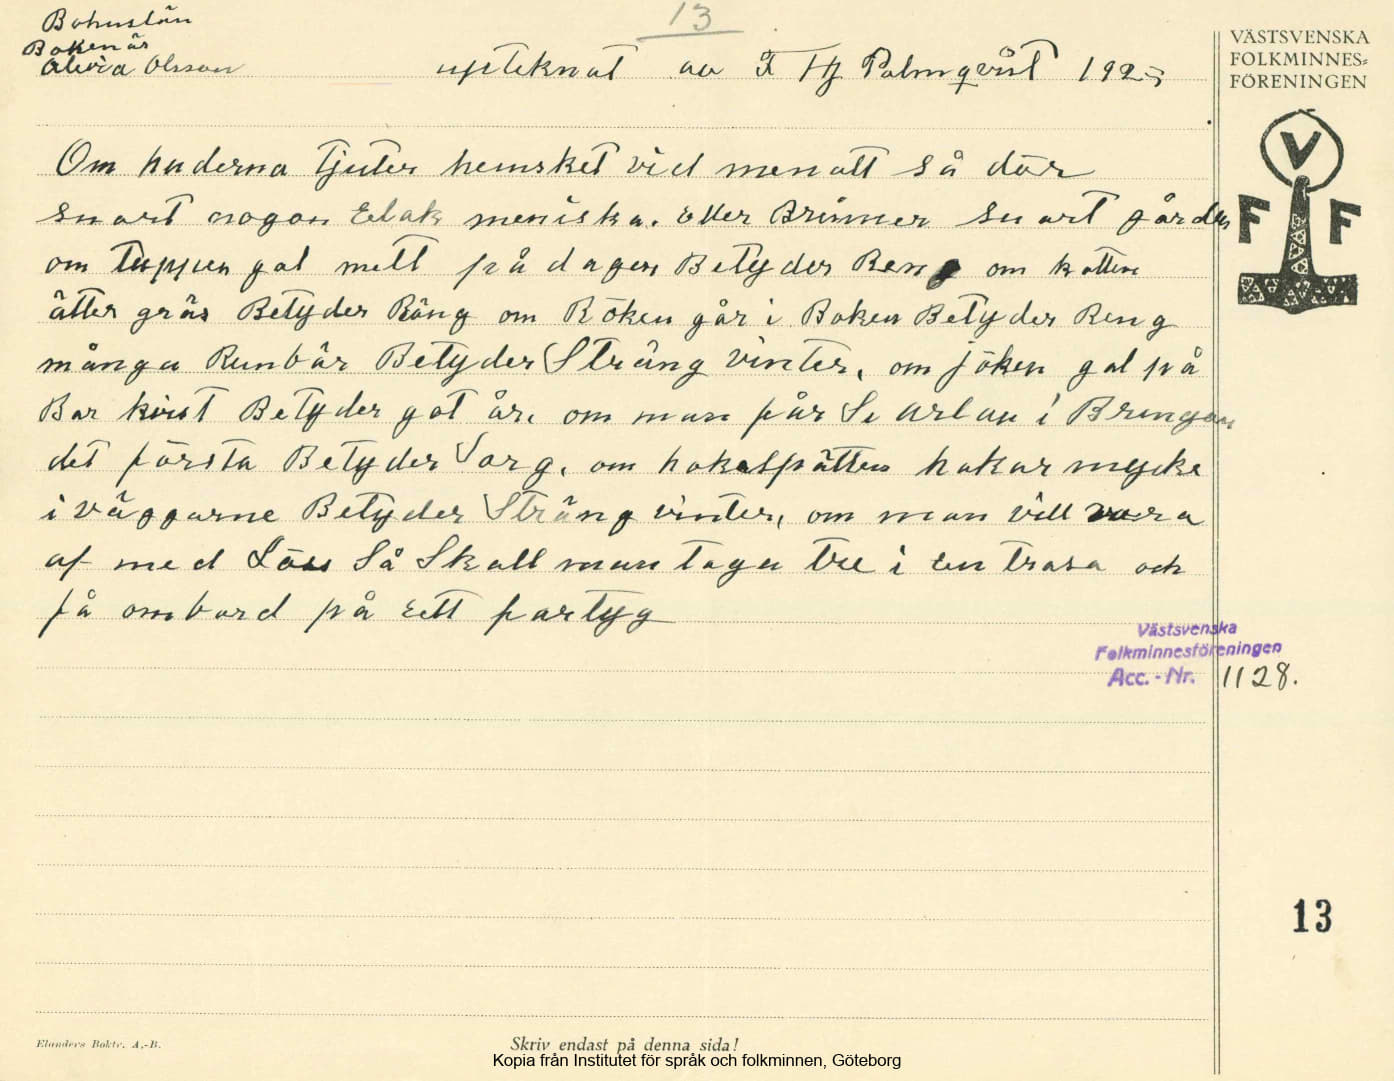 13
Bohuslän
Bokenäs
Alivia Olsson
upteknat av F Hj Palmqvist 1925
VÄSTSVENSKA
FOLKMINNES=
FÖRENINGEN
V
F F
Om hunderna tjuter hemsket vid menatt så dör
snart nogon Elak meniska. Eller Brinner snart gården
om tuppen gal mitt på dagen Betyder Reng om katten
ätter gräs Betyder Räng om Röken går i Baken Betyder Reng
många Runbär Betyder Sträng vinter, om jöken gal på
Bar kvist Betyder got år, om man får Se arlan i Brengan
det första Betyder Sorg, om hakspätten hakar mycke
i väggarne Betyder Sträng vinter, om man vill vara
af med Löss Så Skall man taga tre i En trasa och
få ombord på Ett fartyg
Västsvenska
Folkminnesföreningen
Acc.-Nr. 1128.
13
Elanders Boktr. A.-B.
Skriv endast på denna sida!
Kopia från Institutet för språk och folkminnen, Göteborg